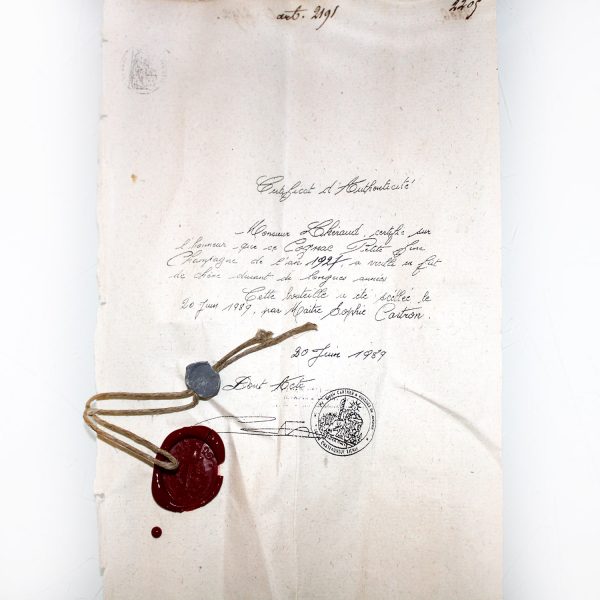 art. 2191
2205
Certificat d'Authenticité
Monsieur Lhéraud, certifie sur
l'honneur que ce Cognac Petite Fine
Champagne de l'an 1927, a vieilli en fût
de chêne durant de longues années
Cette bouteille a été scéllée le
20 Juin 1989, par Maître Sophie Castron.
20 Juin 1989
Dont Acte